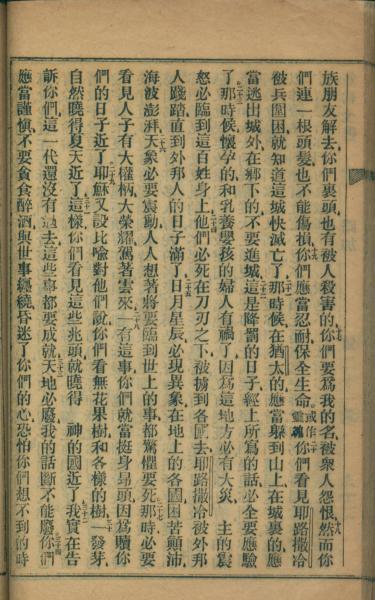 族朋友解去你們裏頭也有被人殺害的十七你們要爲我的名被衆人怨恨十八然而你
們連一根頭髮也不能傷損十九你們應當忍耐保全生命或作靈魂二十你們看見耶路撒冷
被兵圍困就知道這城快滅亡了二十一那時候在猶太的應當躲到山上在城裏的應
當逃出城外在鄉下的不要進城二十二這是降罰的日子經上所寫的話必全要應驗
了二十三那時候懷孕的和乳養嬰孩的婦人有禍了因爲這地方必有大災 主的震
怒必臨到這百姓身上二十四他們必死在刀刃之下被擄到各國去耶路撒冷被外邦
人踐踏直到外邦人的日子滿了二十五日月星辰必現異象在地上的各國困苦顚沛
海波澎湃二十六天象必要震動人人想著將要臨到世上的事都驚懼要死二十七那時必要
看見人子有大權柄大榮耀駕著雲來二十八一有這事你們就當挺身昻頭因爲贖你
們的日子近了二十九耶穌又設比喩對他們說你們看無花果樹和各樣的樹三十一發芽
自然曉得夏天近了三十一這樣你們看見這些兆頭就曉得 神的國近了三十二我實在告
訴你們這一代還沒有過去這些事都要成就三十三天地必廢我的話斷不能廢三十四你們
應當謹愼不要貪食醉酒與世事纏繞昏迷了你們的心恐怕你們想不到的時